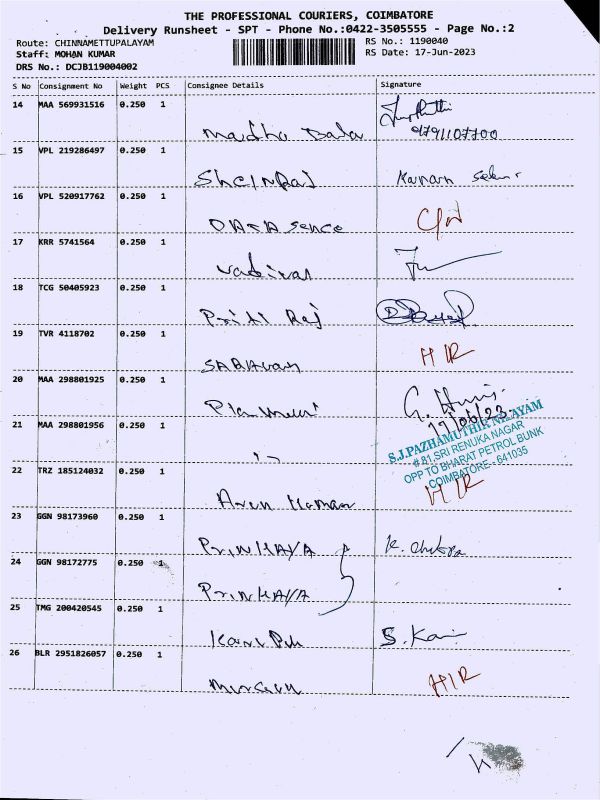 THE PROFESSIONAL COURIERS, COIMBATORE
Delivery Runsheet - SPT - Phone No.:0422-3505555 - Page No.:2
Route: CHINNAMETTUPALAYAM RS No.: 1190040
Staff: MOHAN KUMAR RS Date: 17-Jun-2023
DRS No.: DCJB119004002
S No Consignment No Weight PCS Consignee Details Signature
14 MAA 569931516 0.250 1
Madhu Bala 9791107700
15 VPL 219286497 0.250 1
16 VPL 520917762 0.250 1
DATA Sence
17 KRR 5741564 0.250 1
18 TCG 50405923 0.250 1
Priti Raj
19 TVR 4118702 0.250 1
HIR
20 MAA 298801925 0.250 1
17/06/23
21 MAA 298801956 0.250 1
S.J.PAZHAMUTHIR NILAYAM
#81,SRI RENUKA NAGAR
OPP TO BHARAT PETROL BUNK
COIMBATORE - 641035
22 TRZ 185124032 0.250 1
HIR
Arun
23 GGN 98173960 0.250 1
24 GGN 98172775 0.250 1
25 TMG 200420545 0.250 1
26 BLR 2951826057 0.250 1
HIR